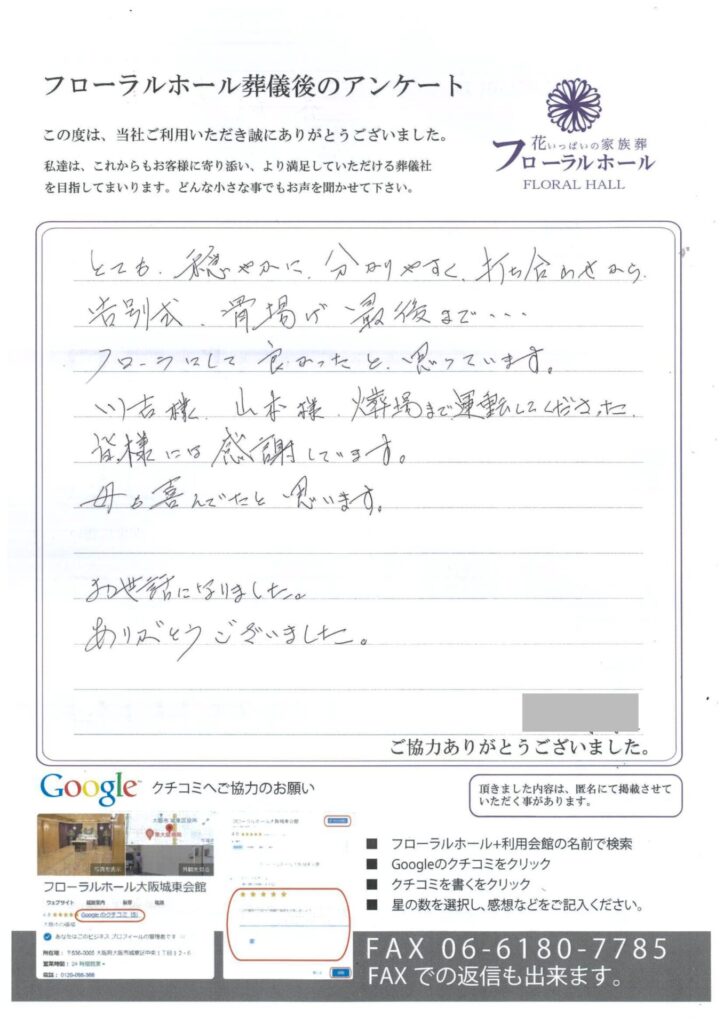 フローラルホール葬儀後のアンケート
この度は、当社ご利用いただき誠にありがとうございました。
私達は、これからもお客様に寄り添い、より満足していただける葬儀社
を目指してまいります。どんな小さな事でもお声を聞かせて下さい。
花いっぱいの家族葬
フローラルホール
FLORAL HALL
とても、穏やかに、分かりやすく、打ち合わせから
告別式、骨揚げ 最後まで・・・
フローラにして良かったと、思っています。
川吉様、山本様、火葬場まで運転してくださった
皆様には感謝しています。
母も喜んでたと思います。
お世話になりました。
ありがとうございました。
ご協力ありがとうございました。
Google クチコミへご協力のお願い
頂きました内容は、匿名にて掲載させて
いただく事があります。
写真を表示
外観を見る
フローラルホール大阪城東会館
ウェブサイト
Google のクチコミ (5)
あなたはこのビジネス プロフィールの管理者です
フローラルホール大阪城東会館
■ フローラルホール+利用会館の名前で検索
■ Googleのクチコミをクリック
■ クチコミを書くをクリック
■ 星の数を選択し、感想などをご記入ください。
FAX 06-6180-7785
FAX での返信も出来ます。